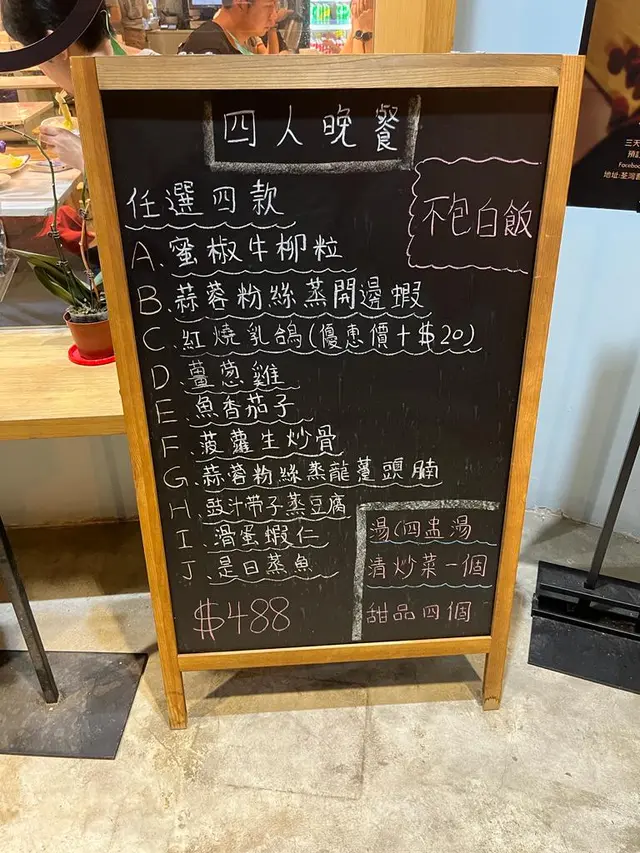 四人晚餐
任選四款
不包白飯
A. 蜜椒牛柳粒
B. 蒜蓉粉絲蒸開邊蝦
C. 紅燒乳鴿(優惠價+$20)
D. 薑葱雞
E. 魚香茄子
F. 菠蘿生炒骨
G. 蒜蓉粉絲蒸龍躉頭腩
H. 豉汁帶子蒸豆腐
I. 滑蛋蝦仁
J. 是日蒸魚
$488
湯(四盅湯
清炒菜一個
甜品四個
三天
Facebook
地址:荃灣